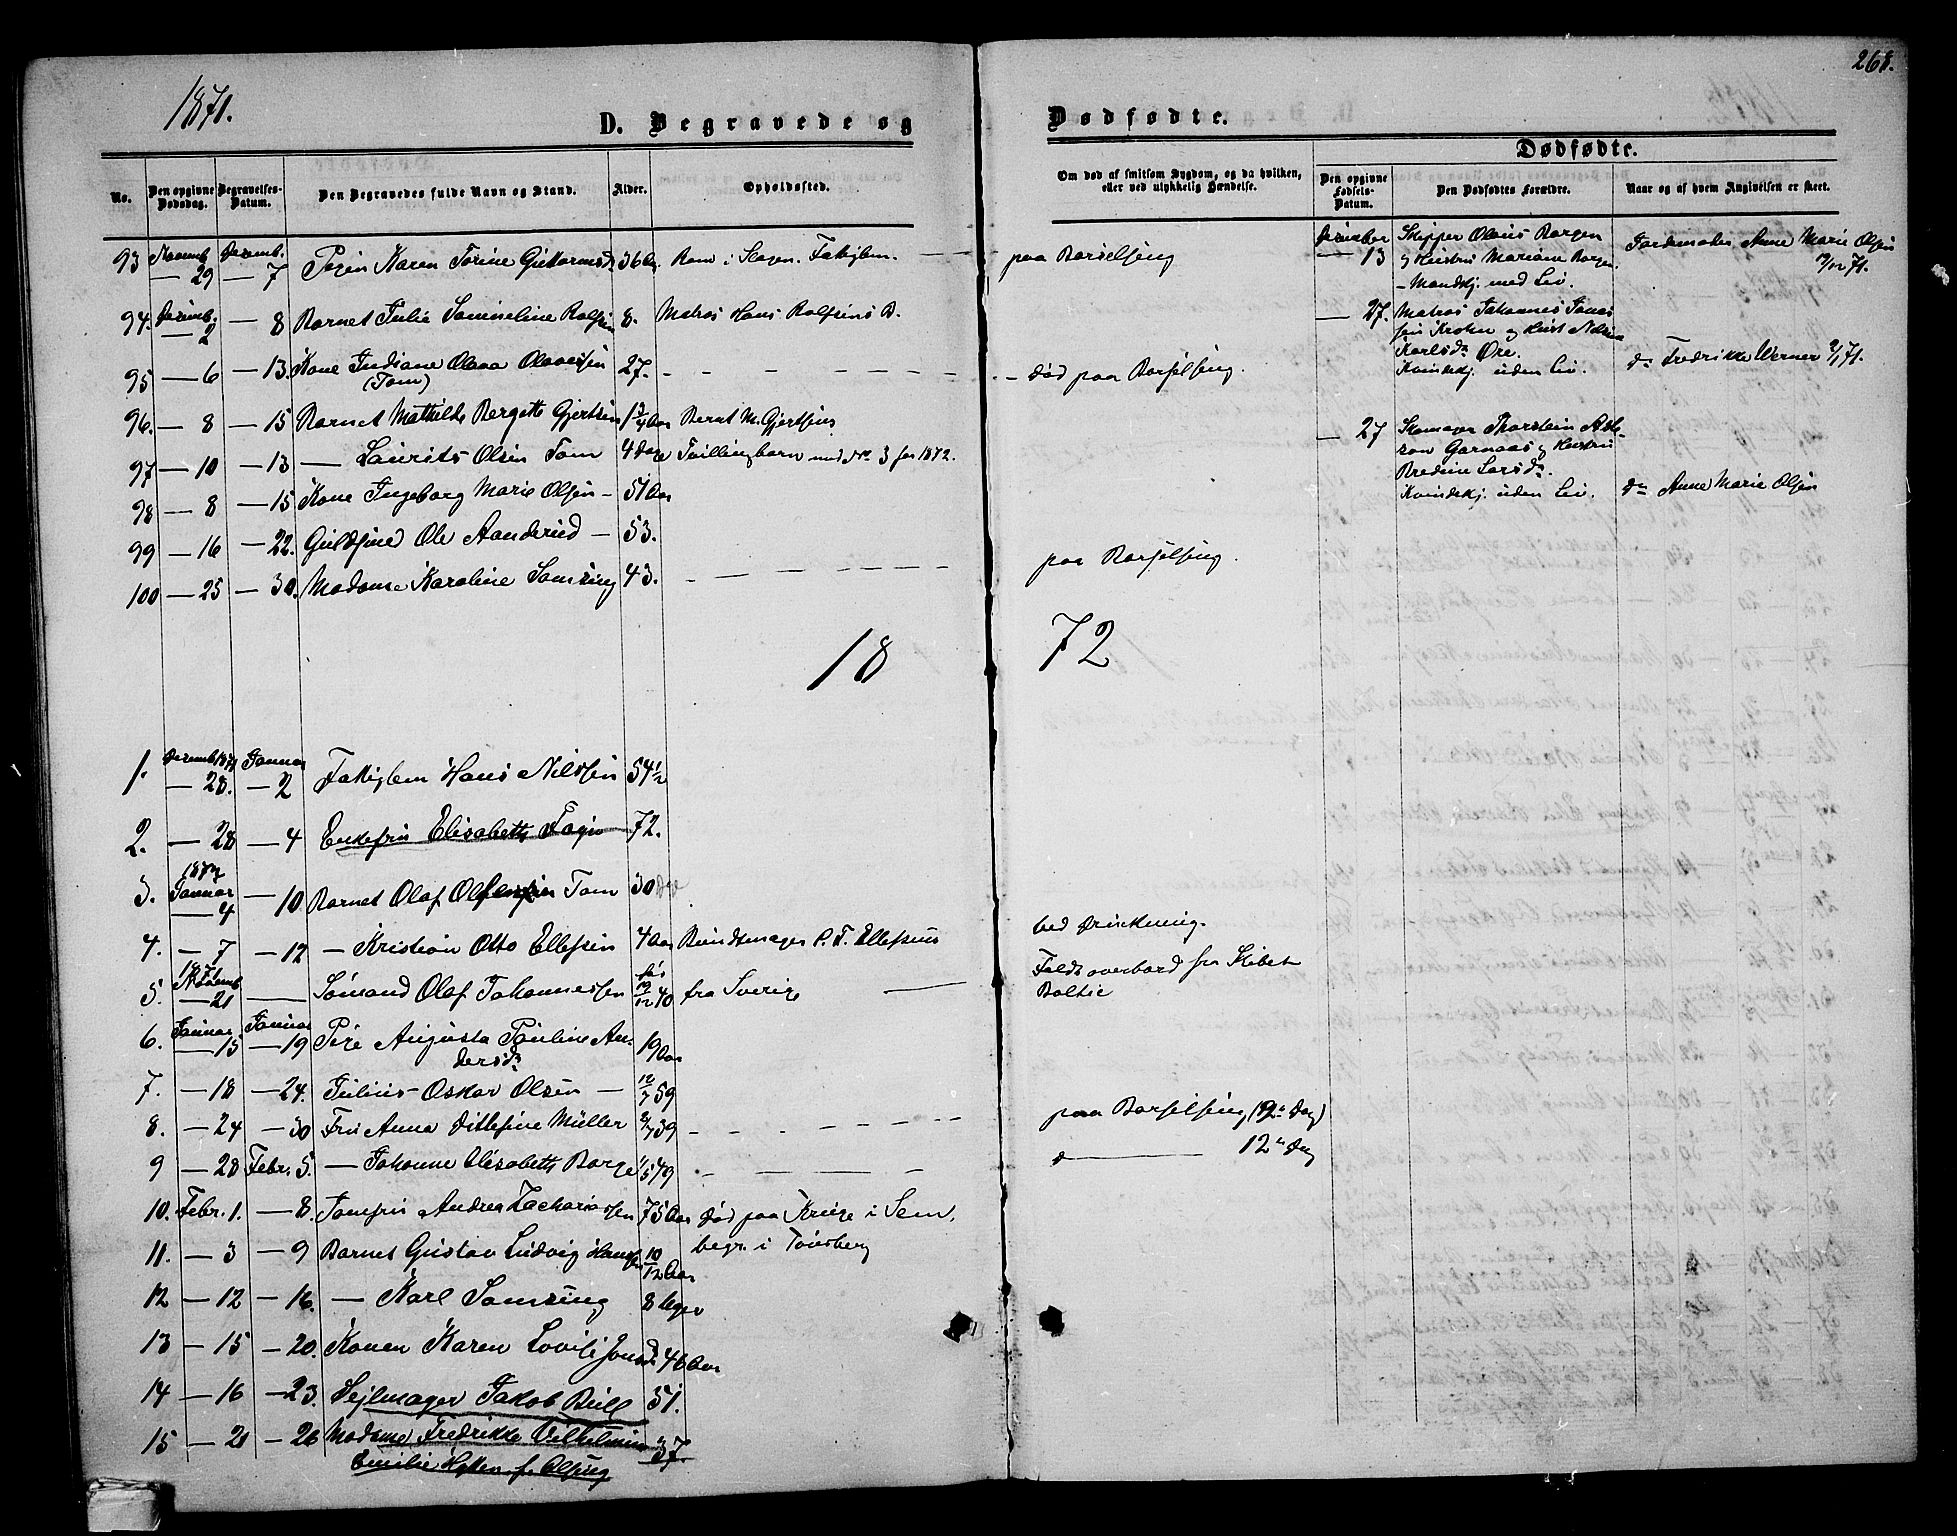 1871.
268.
D. Begravede og
Dødfødte.
Dødfødte.
No.
Den opgivne Dødsdag.
Begravelses-Datum.
Den Begravedes fulde Navn og Stand.
Alder.
Opholdssted.
Om død af smitsom Sygdom, og da hvilken, eller ved ulykkelig Hændelse.
Den opgivne Fødsels-Datum.
Den Dødfødtes Forældre.
Naar og af hvem Angivelsen er skeet.
93 Novemb — 29 Decemb. — 7 Pigen Karen Torine 36 Aar i Slagen. Fattiglem. — paa Barselseng
94. Decemb. — 2 — 8 Barnet Julie Rolfsen 8. Matros Hans Rolfsens B.
95 — 6 — 13. Kone Indiane Olava Olavesen (Tom) 27. — død paa Barselseng.
96. — 8 — 15 Barnet Mathilde Bergette Gjertsen 1 3/4 Aar Bernt M. Gjertsens
97 — 10 — 13 — Laurits Olsen Tom 4 Dage Tvillingbarn med No 3 for 1872.
98 — 8 — 15 Kone Ingeborg Marie Olsen — 51 Aar
99 — 16 — 22. Guldsmed Ole Aanderud — 53.
100 — 25 — 30. Madame Karoline Samsing 43. — paa Barselseng.
December — 13 Skipper Olaus Borgen
og Hustru Mariane Borgen.
— Mandkj. med Liv.
Jordemoder Anne Marie Olsen
/12 71.
— 27. Matros Johannes Jonas-
sen Krohn og Hust
Karlsdr Øre.
Kvindekj. uden Liv.
do Fredrikke Werner
— 27 Skomager Thorstein
son Garnaas og Hustru
Bredine Larsdr.
Kvindekj. uden Liv.
do Anne Marie Olsen
18 72
1. Decemb 1871 — 28. Januar — 2 Fattiglem Hans Nilssen 54 1/2
2. — 28 — 4 Enkefru Elisabeth Fagn 72.
3. 1872 Januar — 4 — 10 Barnet Olaf Tom 30
4. — 7 — 12 — Kristian Otto Ellefsen 4 Aar Bundtmager P. T. Ellefsens ved Drukning.
5. 1871 Novemb — 21 — Sømand Olaf Johannessen 19/12 40 fra Sverige — Faldt overbord fra Skibet
Baltic
6. Januar — 15 Januar — 19 Pige Augusta Pauline An-
dersdr 19 Aar
7. — 18 — 24. Julius Oskar Olsen — 12/7 59
8. — 24 — 30 Fru Anna Ditlefine Müller 39 — paa Barselseng (9de Dag)
9 — 28 Febr. 5. — Johanne Elisabeth Borge 49 — do — 12te Dag
10. Febr. 1. — 8. Jomfru Andrea Zachariassen 75 Aar død paa i Sem,
begr. i Tønsberg
11. — 3 — 9 Barnet Gustav Ludvig Hansen 10/12 Aar
12 — 12 — 16. — Karl Samsing 8 Uger
13 — 15 — 20. Konen Karen Lovise Jonsd 46 Aar
14 — 16 — 23. Sejlmager Jakob Bull 51.
15 — 21 — 26 Madame Fredrikke Vilhelmine 37.
Emilie f. Olsen